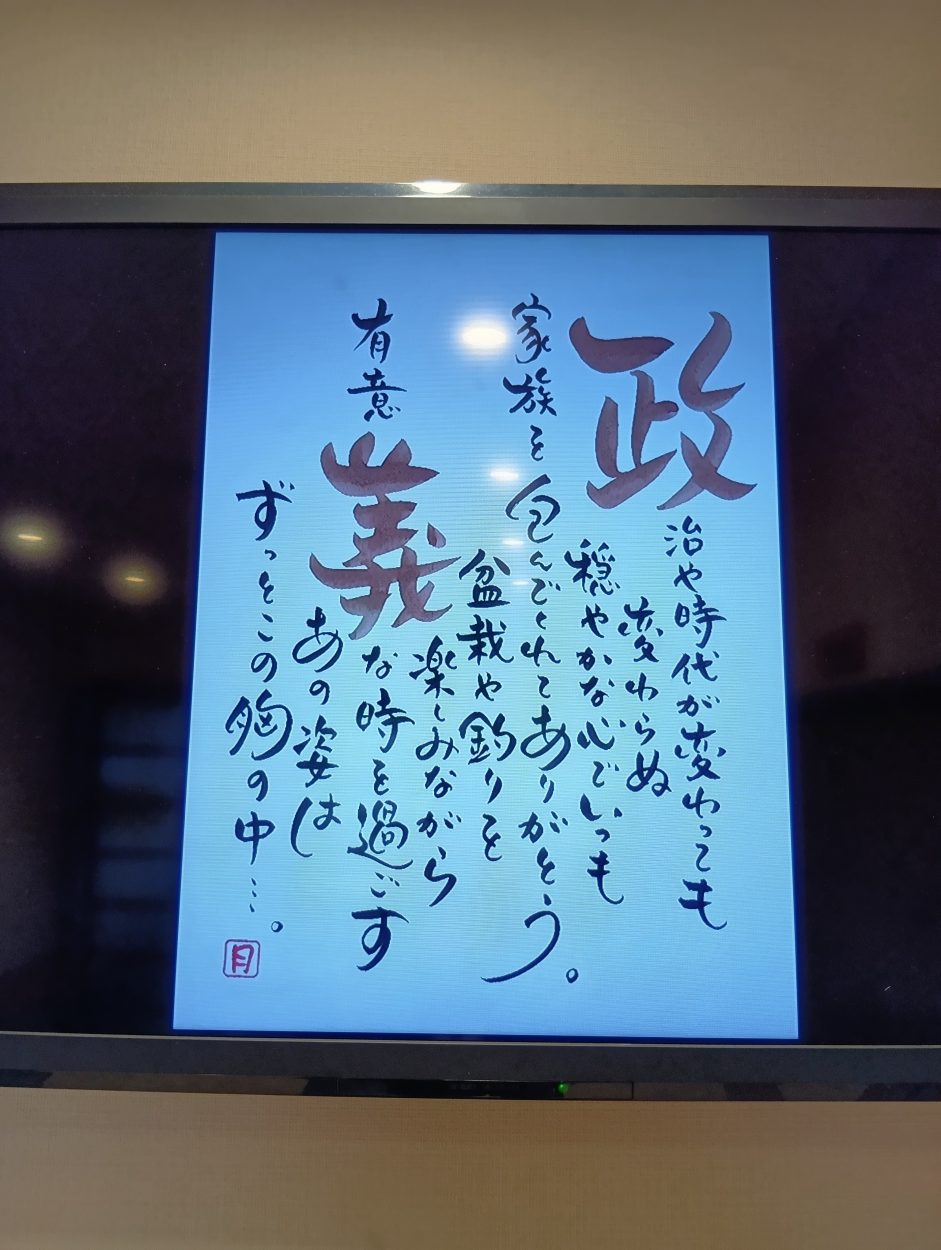 政治や時代が変わっても
変わらぬ
穏やかな心でいつも
家族を包んでくれてありがとう。
盆栽や釣りを
楽しみながら
有意義な時を過ごす
あの姿は
ずっとこの胸の中…。
月